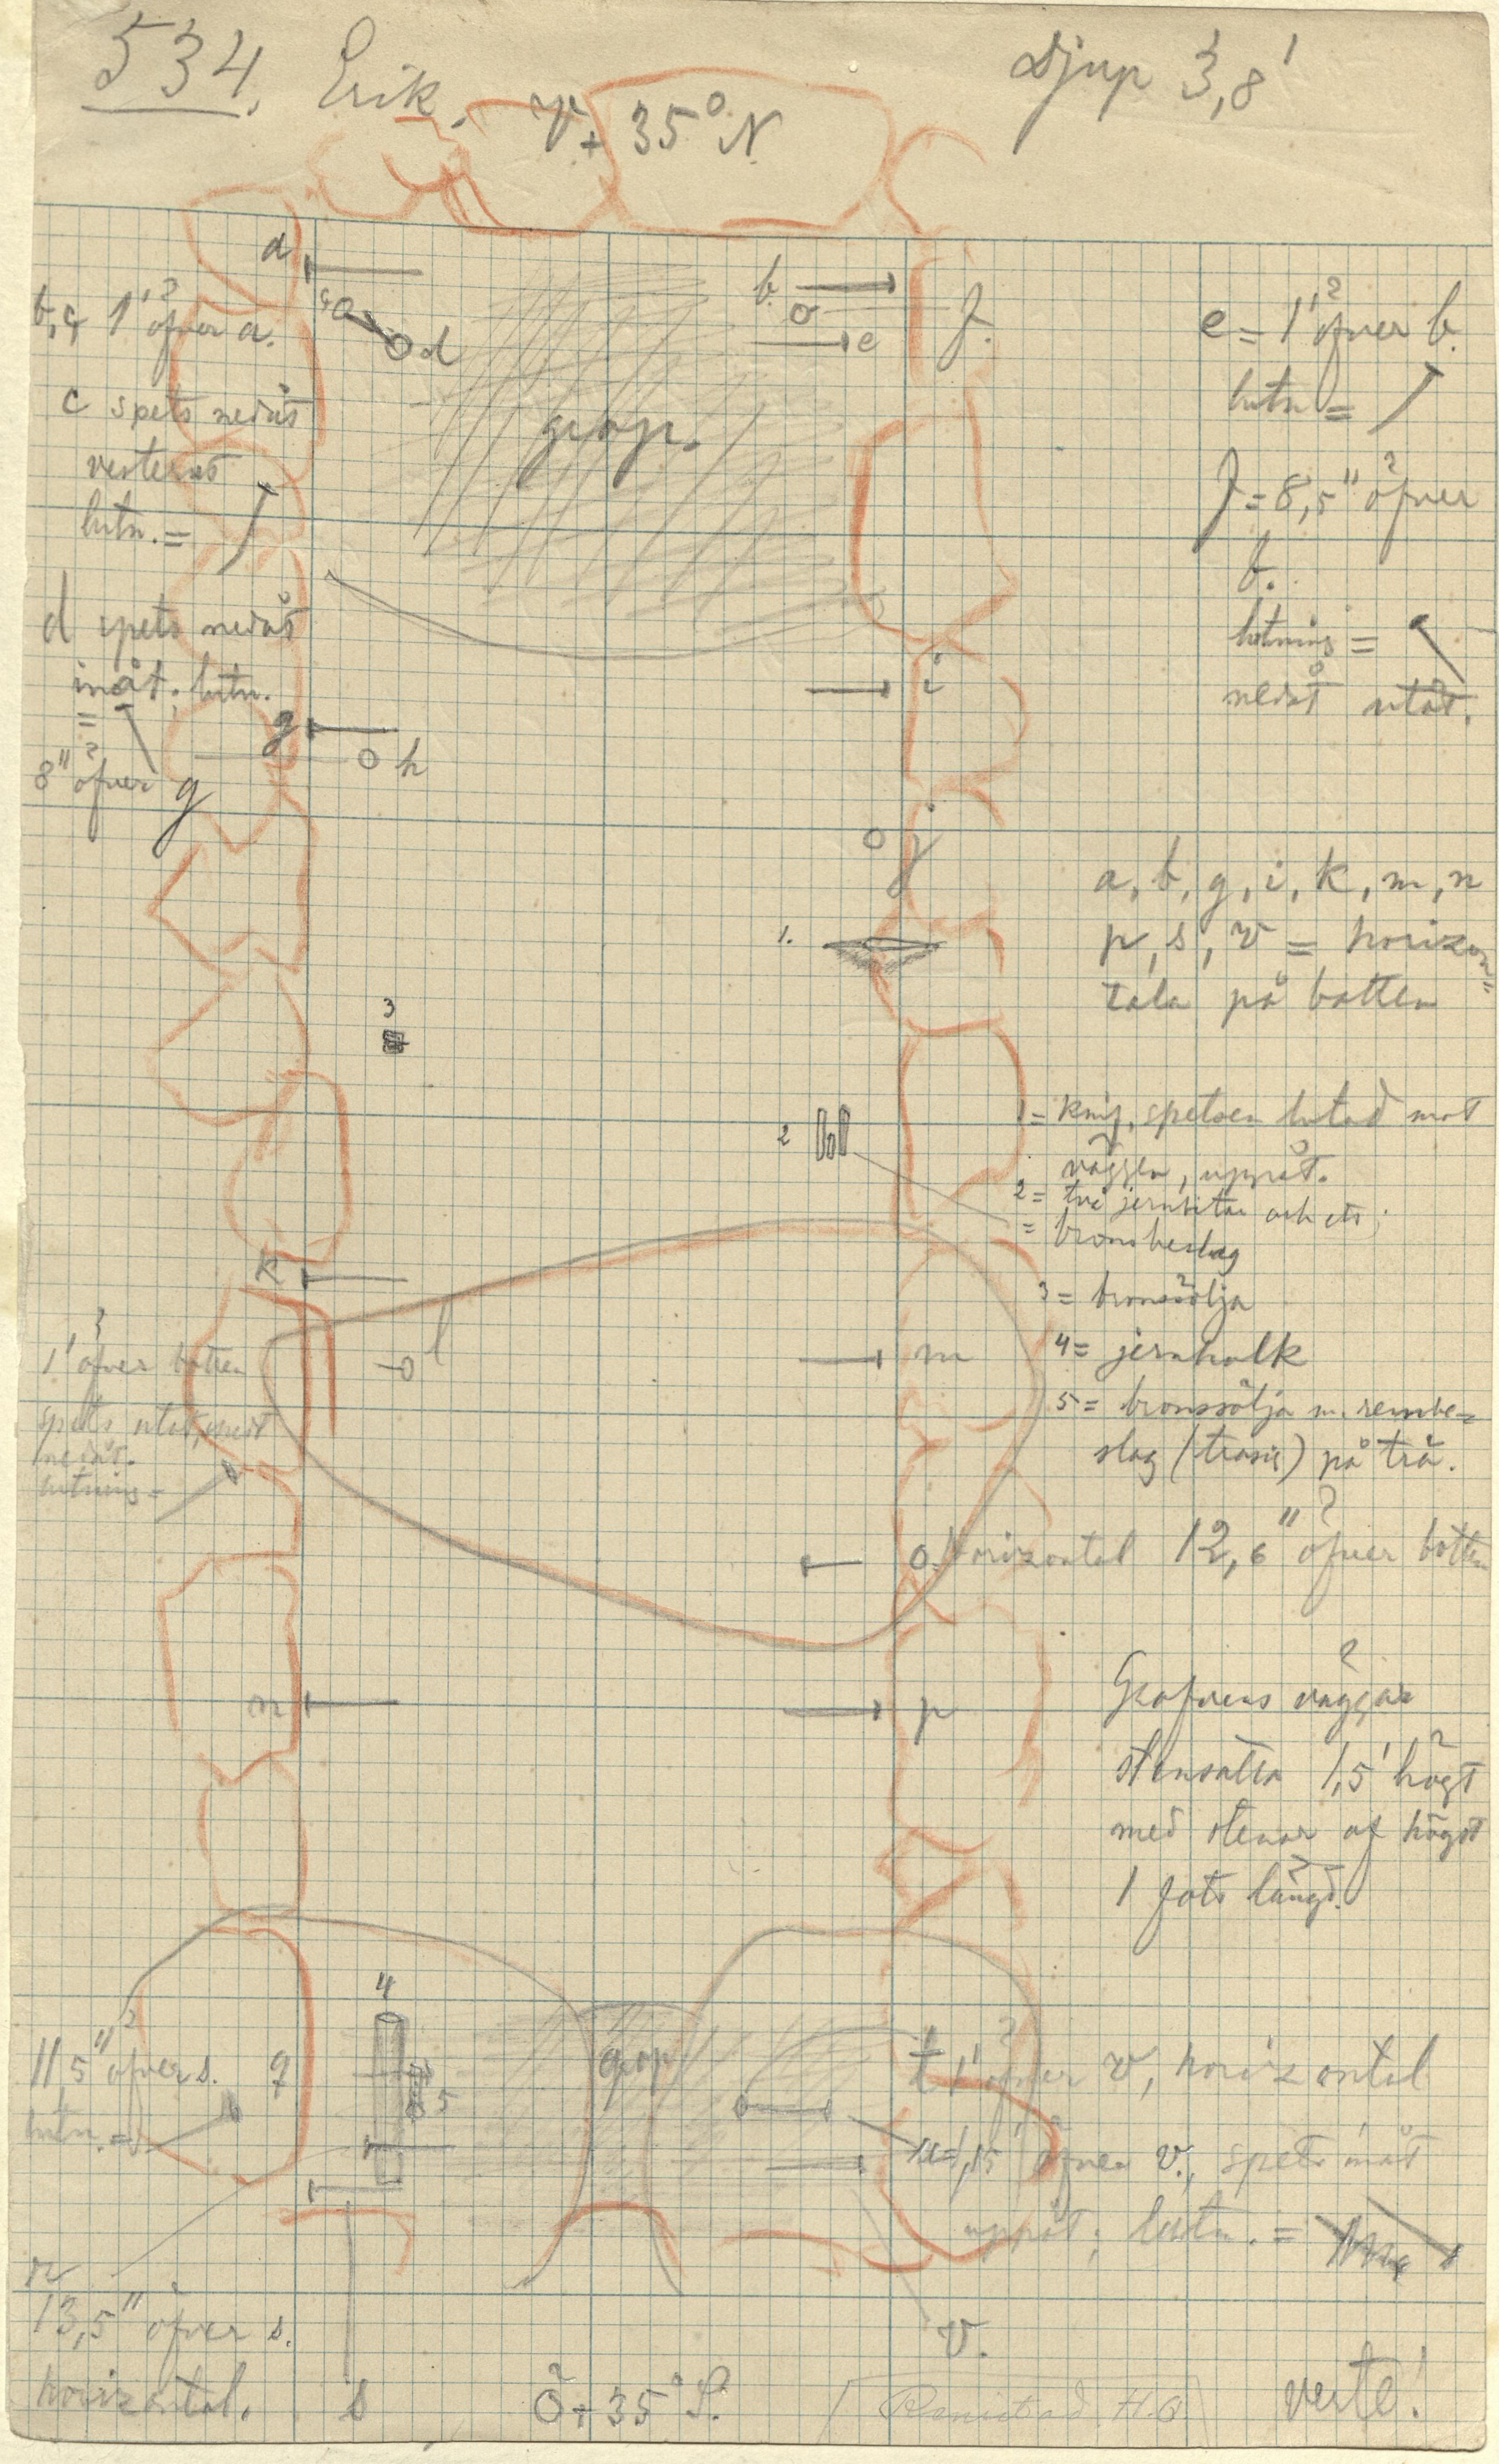 534. Erik.
Djup 3,8'
V + 35° N.
a
b
c
d
e
f.
b, c, 1' öfver a.
c spets nedåt
vesterut
lutn. =
d spets nedåt
inåt. lutn.
=
8" öfver g
grop.
e = 1' öfver b.
lutn =
f = 8,5" öfver
b.
lutning =
nedåt utåt.
g
h
i
j
a, b, g, i, k, m, n
p, s, v = horizon=
tala på botten
1.
3
2
1 = knif, spetsen lutad mot
väggen, uppåt.
2 = två jernbitar och ett
= bronsbeslag
3 = bronssölja
4 = jernholk
5 = bronssölja m. rembe=
slag (trasig) på trä.
k
l
m
1' öfver botten
spets utåt,
nedåt.
lutning =
o. horizontal 12,6" öfver botten
n
p
Grafvens väggar
stensatta 1,5' högt
med stenar af högst
1 fots längd.
4
5
q
11,5" öfver s.
lutn. =
grop
t 1' öfver v, horizontal
u = 1,15' öfver v., spets inåt
uppåt; lutn. =
r
13,5" öfver s.
horizontal.
s
v.
Ö + 35° S.
verte!